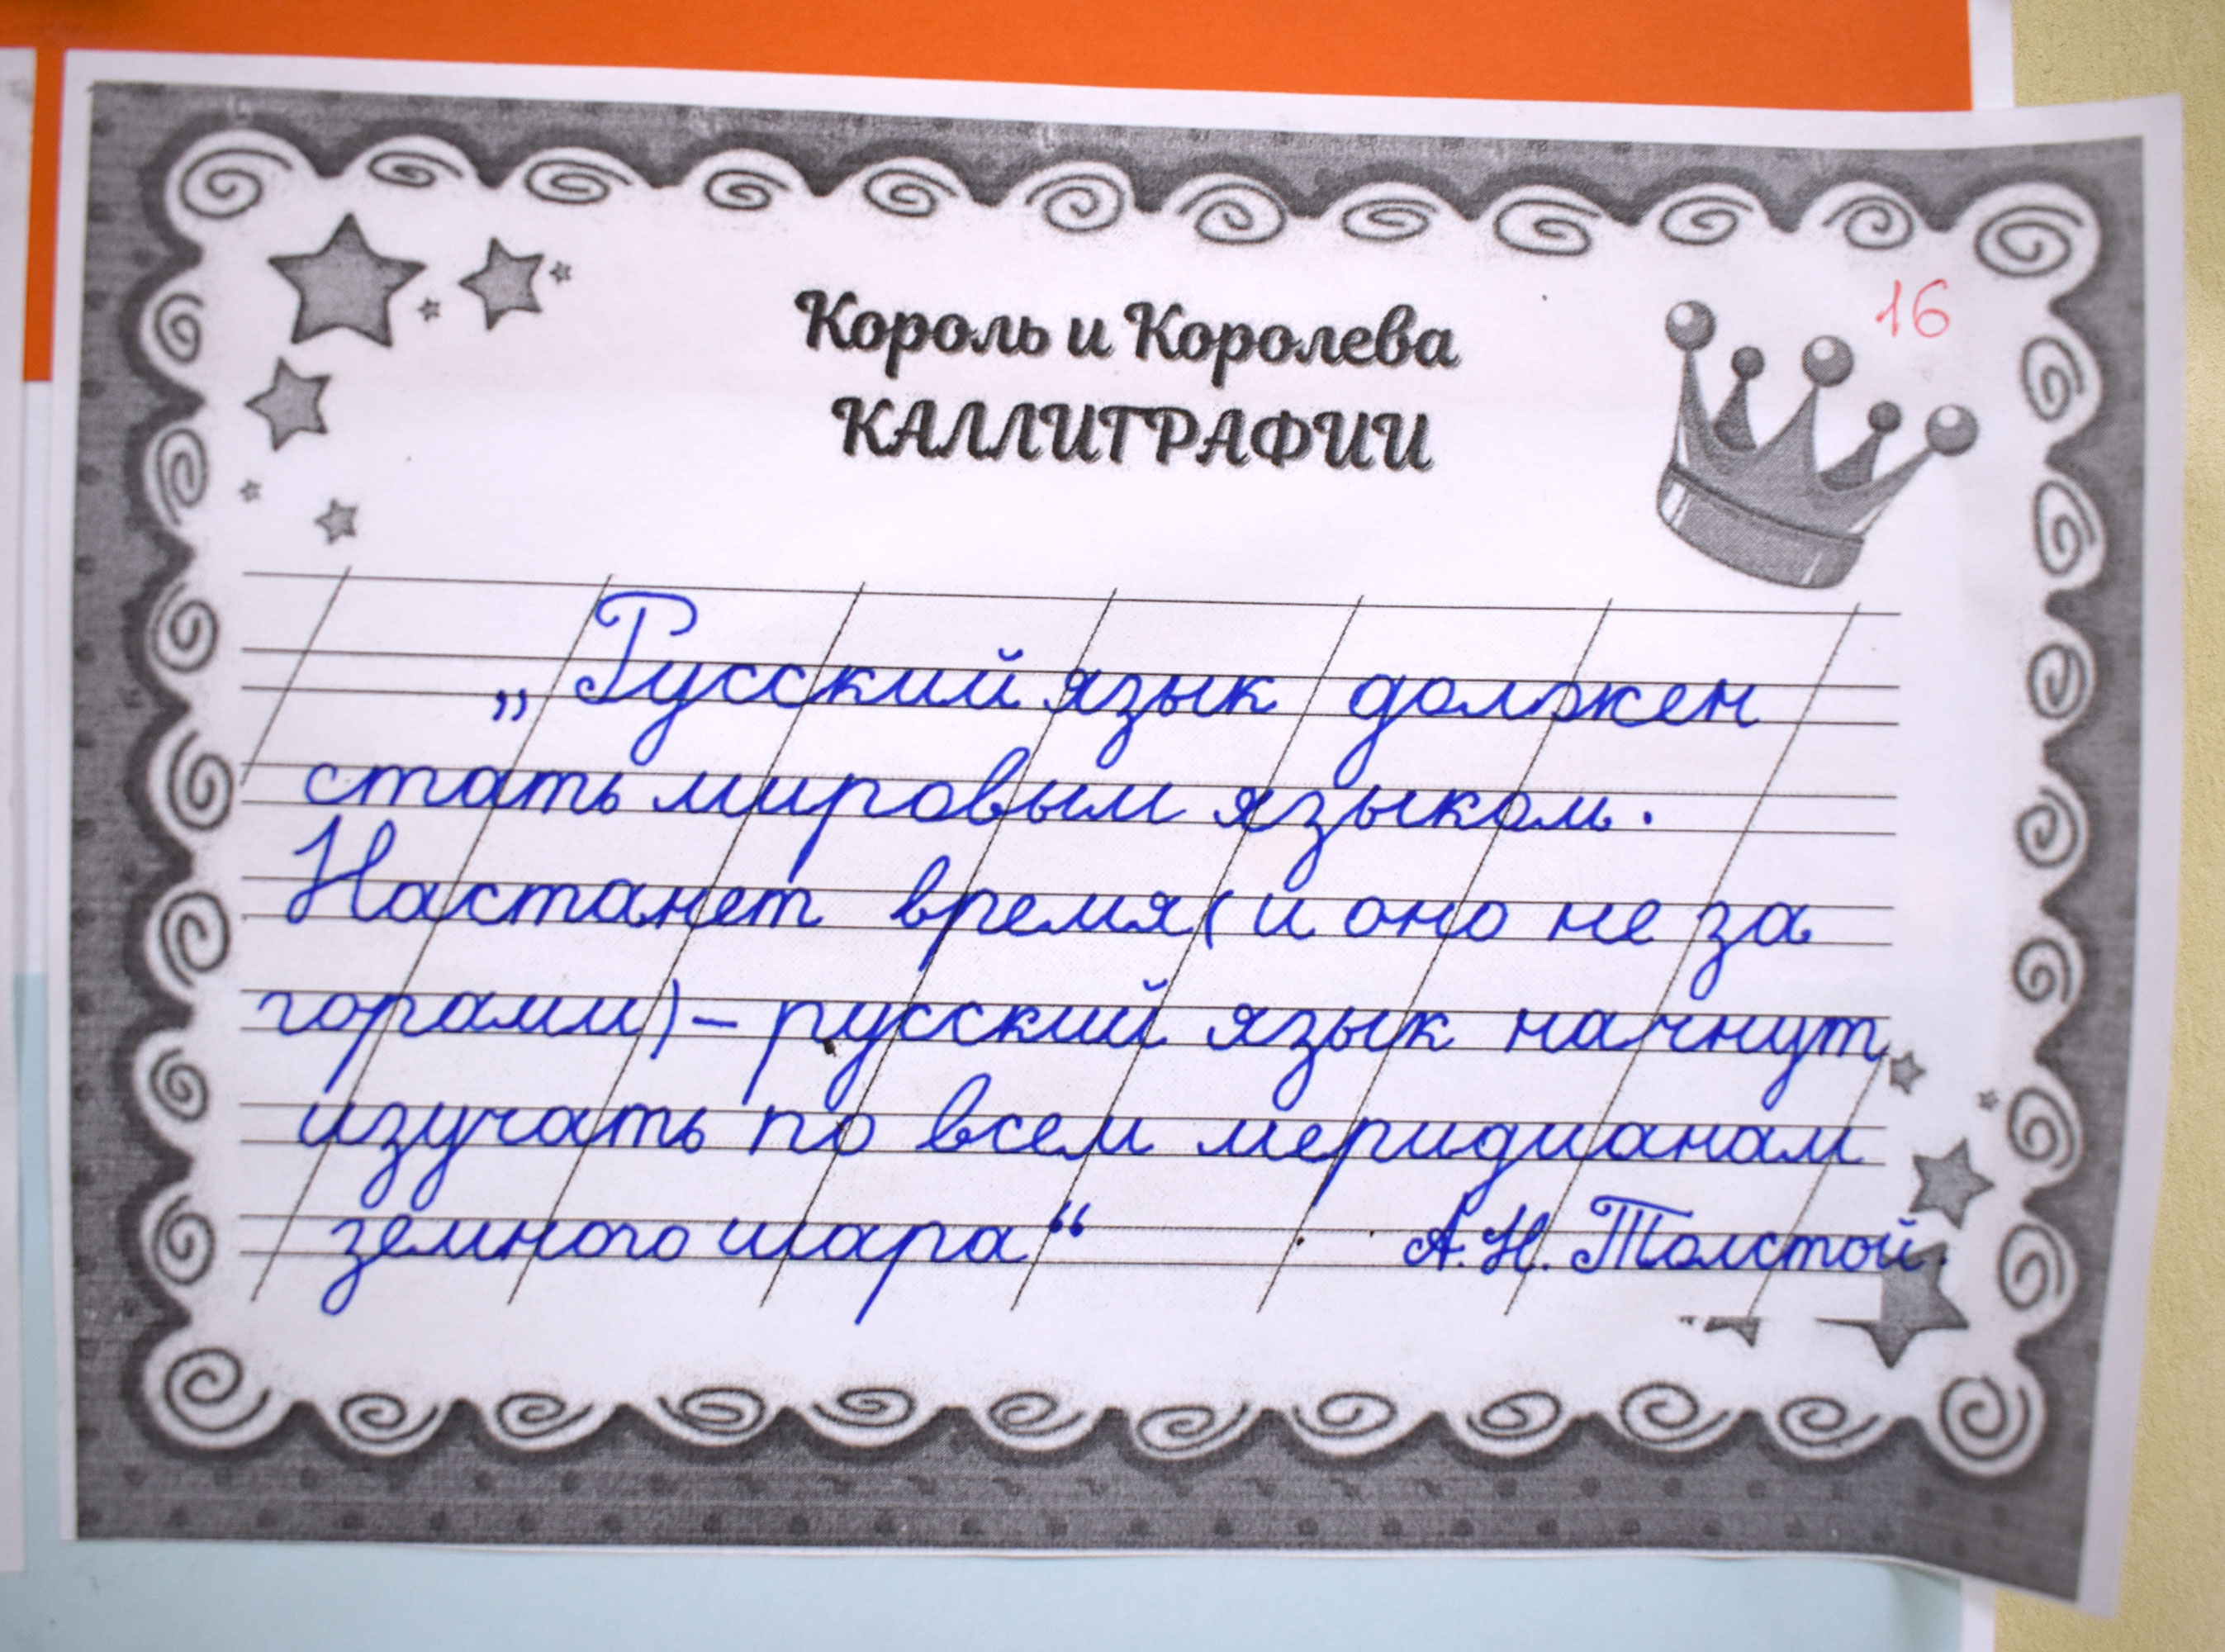 Король и Королева
КАЛЛИГРАФИИ
16
„Русский язык должен
стать мировым языком.
Настанет время (и оно не за
горами) – русский язык начнут
изучать по всем меридианам
земного шара“ А.Н. Толстой.